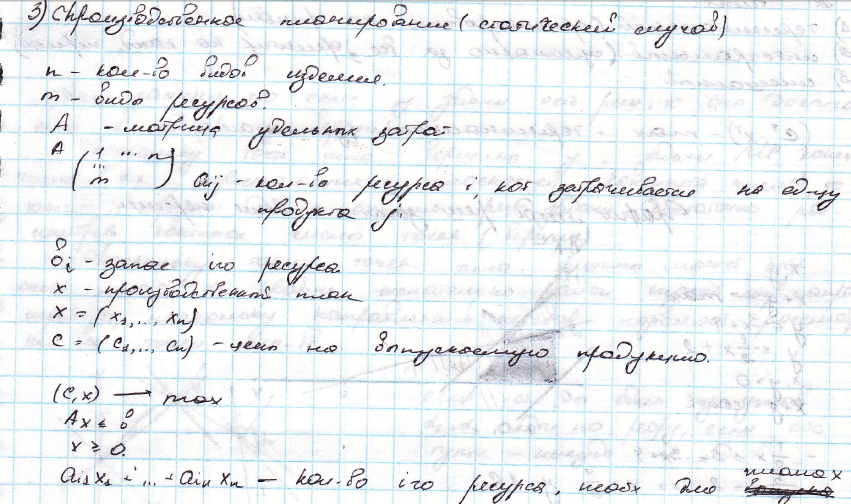 3) Производственное планирование (статический случай)
n – кол-во видов изделия.
m – виды ресурсов.
A – матрица удельных затрат
A (1 ... n
...
m) aij – кол-во ресурса i, кот затрачивается на ед-цу
продукта j.
bi – запас iго ресурса
x – производственный план
x = (x1,..., xn)
c = (c1,..., cn) – цены на выпускаемую продукцию.
(c,x) → max
Ax ≤ b
x ≥ 0.
ai1x1 + ... + ain xn – кол-во iго ресурса, необх для плана x